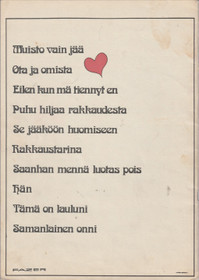 Muisto vain jää
Ota ja omista
Eilen kun mä tiennyt en
Puhu hiljaa rakkaudesta
Se jääköön huomiseen
Rakkaustarina
Saanhan mennä luotas pois
Hän
Tämä on lauluni
Samanlainen onni
FAZER